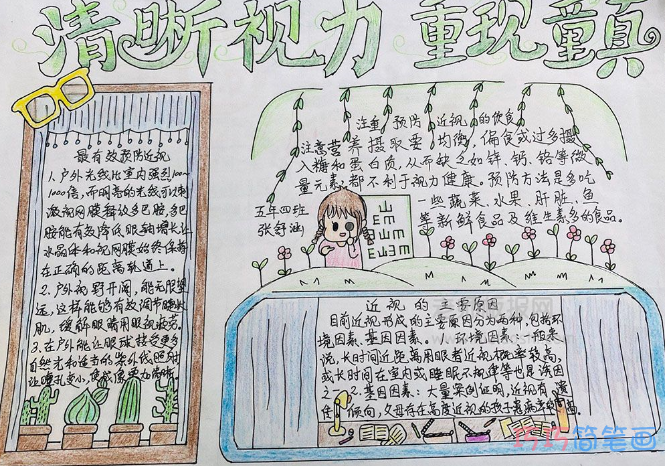 清晰视力 重现童真
最有效预防近视
1、户外光线比室内强到100—
1000倍，而明亮的光线可以刺
激视网膜释放多巴胺，多巴
胺能有效降低眼轴增长，让
水晶体和视网膜始终保持
在正确的距离轨道上。
2、户外视野开阔，能无限望
远，这样能够有效调节睫状
肌，缓解眼睛用眼视疲劳。
3、在户外能让眼球接受更多
自然光和适当的紫外线照射
让瞳孔变小，使成像更为清晰
注重预防近视的饮食
注意营养摄取要均衡，偏食或过多摄
入糖和蛋白质，从而缺乏如锌、钙、铬等微
量元素，都不利于视力健康。预防方法是多吃
一些蔬菜、水果、肝脏、鱼
等新鲜食品及维生素多的食品。
五年四班
张舒涵
山
E m
E 山 m
E山E山
近视的主要原因
目前近视形成的主要原因分为两种，包括环
境因素、基因因素。1、环境因素：一般来
说，长时间近距离用眼者近视概率较高，
成长时间在室内或睡眠不规律等也是诱因
2、基因因素：大量案例证明，近视有遗
传倾向，父母存在高度近视的孩子患病率
巧巧简笔画